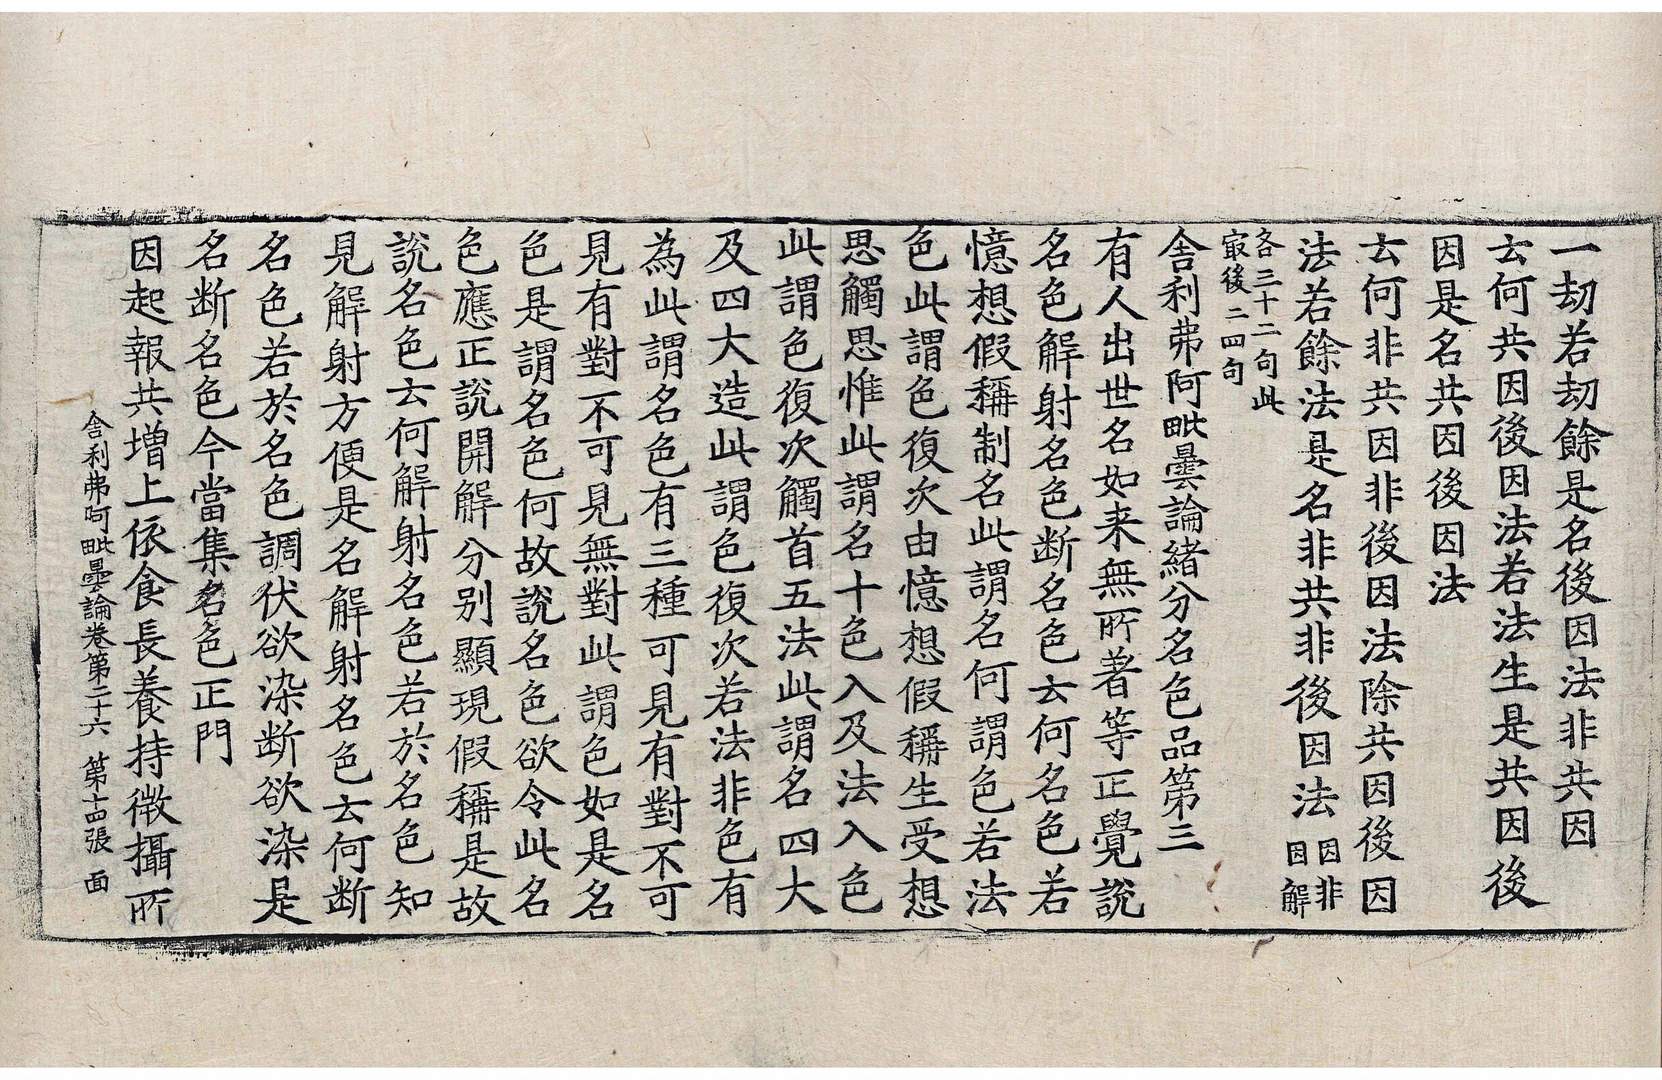 一劫若劫餘是名後因法非共因
去何共因後因法若法生是共因後
因是名共因後因法
去何非共因非後因法除共因後因
法若餘法是名非共非後因法因非因解
各三十二句此
冣後二四句
舍利弗阿毗曇論緒分名色品第三
有人出世名如来無所著等正覺說
名色解射名色断名色去何名色若
憶想假稱制名此謂名何謂色若法
色此謂色復次由憶想假稱生受想
思觸思惟此謂名十色入及法入色
此謂色復次觸首五法此謂名四大
及四大造此謂色復次若法非色有
為此謂名色有三種可見有對不可
見有對不可見無對此謂色如是名
色是謂名色何故說名色欲令此名
色應正說開解分別顯現假稱是故
說名色去何解射名色若於名色知
見解射方便是名解射名色去何断
名色若於名色調伏欲染断欲染是
名断名色今當集名色正門
因起報共增上依食長養持微攝所
舍利弗阿毗曇論卷第二十六 第十四張 面